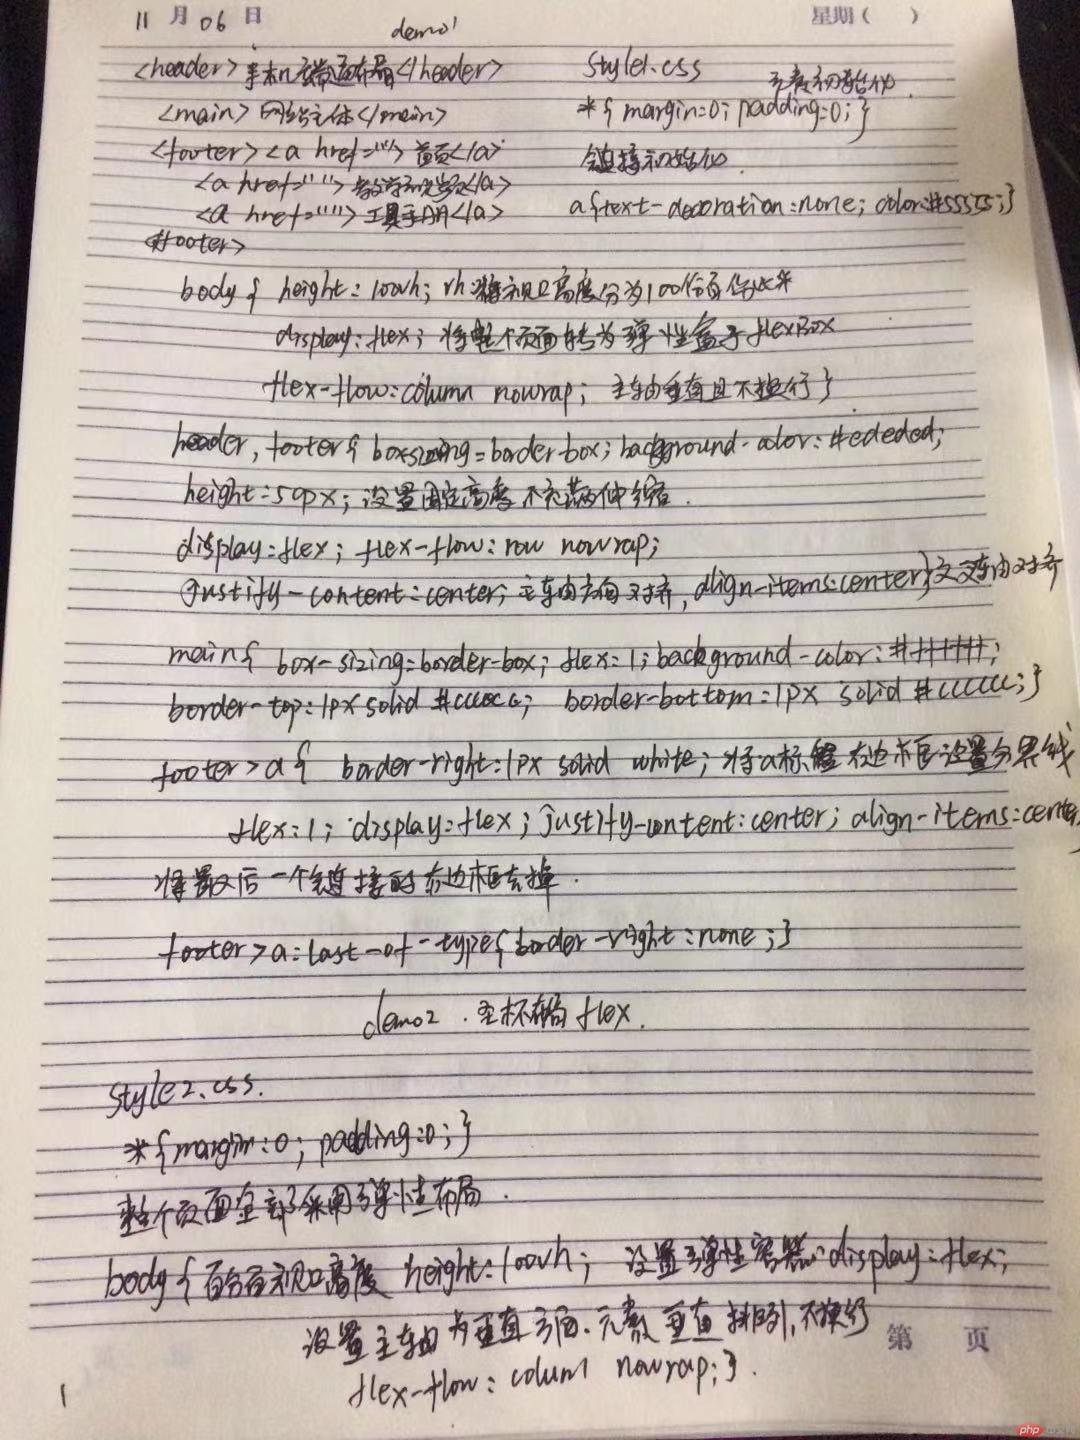 11 月 06 日 星期( )
demo1
<header>手机端通布局</header>
<main>网站主体</main>
<footer><a href="">首页</a>
<a href="">教学视频</a>
<a href="">工具手册</a>
<footer>
style1.css
元素初始化
*{ margin:0; padding:0; }
链接初始化
a{text-decoration:none; color:#555555;}
body{ height: 100vh; vh:将视口高度分为100份
display:flex; 将整个页面转为弹性盒子flexBox
flex-flow:column nowrap; 主轴垂直且不换行}
header, footer{ boxsizing=border-box; background-color: #ededed;
height:50px; 设置固定高度不
display:flex; flex-flow:row nowrap;
justify-content:center; 主轴方向对齐, align-items:center}交叉轴对齐
main{ box-sizing=border-box; flex:1; background-color:#ffffff;
border-top:1px solid #cccccc; border-bottom:1px solid #cccccc;}
footer>a{ border-right:1px solid white; 将a标签右边框设置分界线
flex:1; display:flex; justify-content:center; align-items:center
将最后一个链接的右边框去掉.
footer>a:last-of-type{ border-right:none;}
demo2.圣杯布局flex.
style2.css.
*{margin:0; padding:0;}
整个页面全部采用弹性布局.
body{百分百视口高度 height:100vh; 设置弹性容器:display:flex;
设置主轴为垂直方向、元素垂直排列,不换行
flex-flow: column nowrap;}.
第 页
1
php